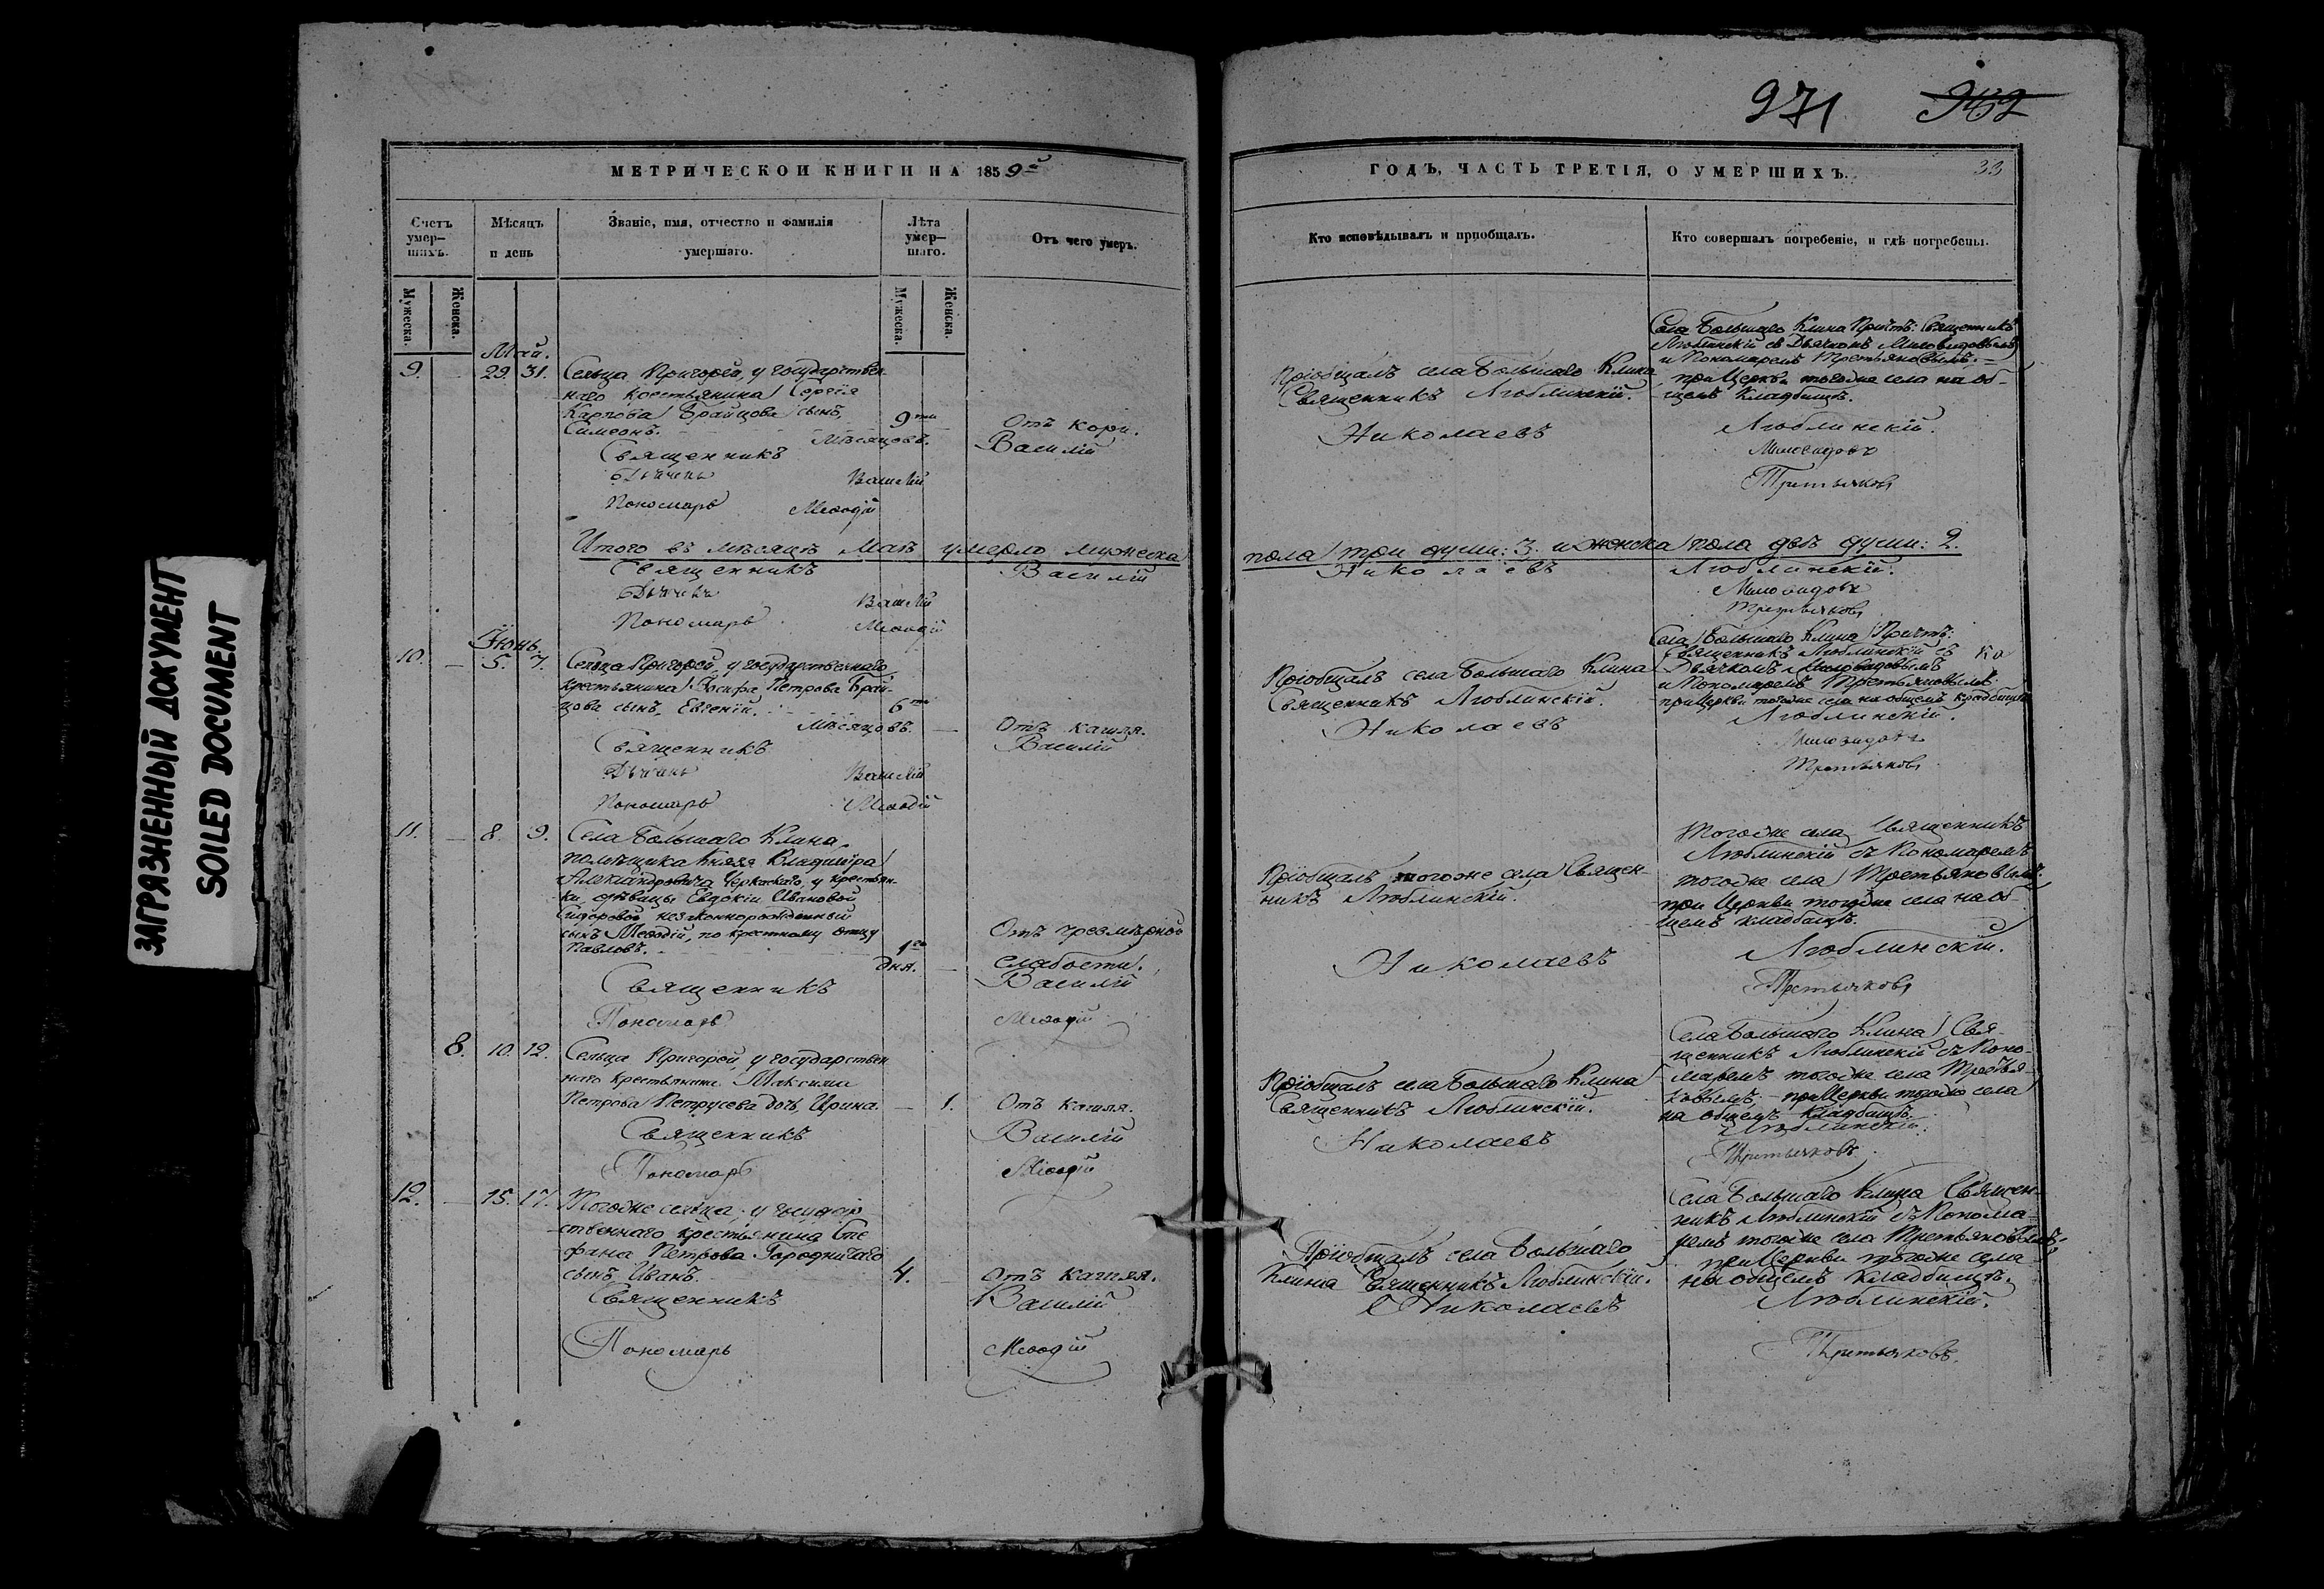 971 932
МЕТРИЧЕСКОЙ КНИГИ НА 1859й
ГОДЪ, ЧАСТЬ ТРЕТІЯ, О УМЕРШИХЪ. 33
Счетъ умер-шихъ.
Мѣсяцъ и день
Званіе, имя, отчество и фамилія
умершаго.
Лѣта умер-шаго.
Отъ чего умеръ.
Кто исповѣдывалъ и пріобщалъ.
Кто совершалъ погребеніе, и гдѣ погребены.
Мужеска. Женска.
Мужеска. Женска.
Май.
9. 29. 31. Сельца Пригорей, у государствен
наго крестьянина Сергія
Карпова Брайцова сынъ,
Симеонъ. 9ти
Мѣсяцовъ. Отъ кори.
Пріобщалъ села Большаго Клина
Священникъ Люблинскій.
Села Большаго Клина Причтъ: Священникъ
Люблинскій съ Дьячкомъ Миловидовымъ
и Пономаремъ Третьяковымъ.
при Церкви тогоже села на об-
щемъ кладбищѣ.
Священникъ Василій Николаевъ Люблинскій.
Дьячекъ Василій Миловидовъ
Пономарь Меѳодій Третьяковъ
Итого въ мѣсяцѣ Маѣ умерло мужеска пола три души: 3. и женска пола двѣ души: 2.
Священникъ Василій Николаевъ Люблинскій.
Дьячекъ Василій Миловидовъ
Пономарь Меѳодій Третьяковъ
Іюнь.
10. 5. 7. Сельца Пригорей, у государственнаго
крестьянина Іосифа Петрова Брай-
цова сынъ, Евгеній. 6ти
Мѣсяцовъ. Отъ кашля.
Пріобщалъ села Большаго Клина
Священникъ Люблинскій.
Села Большаго Клина Причтъ:
Священникъ Люблинскій съ
Дьячкомъ Миловидовымъ
и Пономаремъ Третьяковымъ
при Церкви тогоже села на общемъ кладбищѣ
Священникъ Василій Николаевъ Люблинскій.
Дьячекъ Василій Миловидовъ
Пономарь Меѳодій Третьяковъ
11. 8. 9. Села Большаго Клина,
помѣщика Князя Владиміра
Александровича Черкаскаго, у крестьян-
ки, дѣвицы Евдокіи Ивановой
Сидоровой незаконнорожденный
сынъ Меѳодій, по крестному отцу
Павловъ. 1го
дня. Отъ чрезмѣрной
слабости.
Пріобщалъ тогоже села Священ-
никъ Люблинскій.
Тогоже села Священникъ
Люблинскій съ Пономаремъ
тогоже села Третьяковымъ.
при Церкви тогоже села на об-
щемъ кладбищѣ.
Священникъ Василій Николаевъ Люблинскій.
Пономарь Меѳодій Третьяковъ
8. 10. 12. Сельца Пригорей, у государствен
наго крестьянина Максима
Петрова Петрусева дочь, Ирина. 1. Отъ кашля.
Пріобщалъ села Большаго Клина
Священникъ Люблинскій.
Села Большаго Клина Свя-
щенникъ Люблинскій съ Поно-
маремъ тогоже села Третья-
ковымъ, при Церкви тогоже села
на общемъ кладбищѣ.
Священникъ Василій Николаевъ Люблинскій.
Пономарь Меѳодій Третьяковъ.
12. 15. 17. Тогоже сельца, у государ
ственнаго крестьянина Сте
фана Петрова Городничаго
сынъ, Иванъ. 4. Отъ кашля.
Пріобщалъ села Большаго
Клина Священникъ Люблинскій.
Села Большаго Клина Священ-
никъ Люблинскій съ Понома-
ремъ тогоже села Третьяковымъ,
при Церкви тогоже села
на общемъ кладбищѣ.
Священникъ Василій Николаевъ Люблинскій.
Пономарь Меѳодій Третьяковъ.
ЗАГРЯЗНЕННЫЙ ДОКУМЕНТ
SOILED DOCUMENT